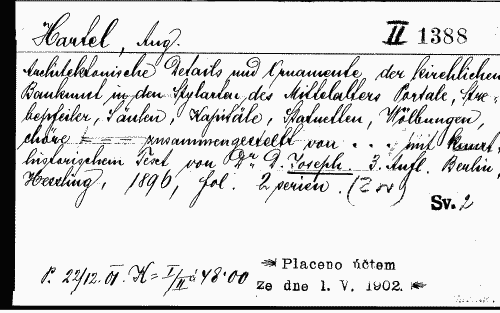 Hartel, Aug. II 1388
Architektonische Details und Ornamente der kirchlichen
Baukunst in den Stylarten des Mittelalters Portale, Stre-
bepfeiler, Säulen, Kapitäle, Statuetten, Wölbungen,
chöre zusammengestellt von . . . mit kunst-
historischem Text von Dr D. Joseph. 3. Aufl. Berlin,
Hessling, 1896, fol. 2 serien. (2 sv)
Sv. 2
P. 22/12. 01. K = I/II á 48·00
Placeno účtem
ze dne 1. V. 1902.